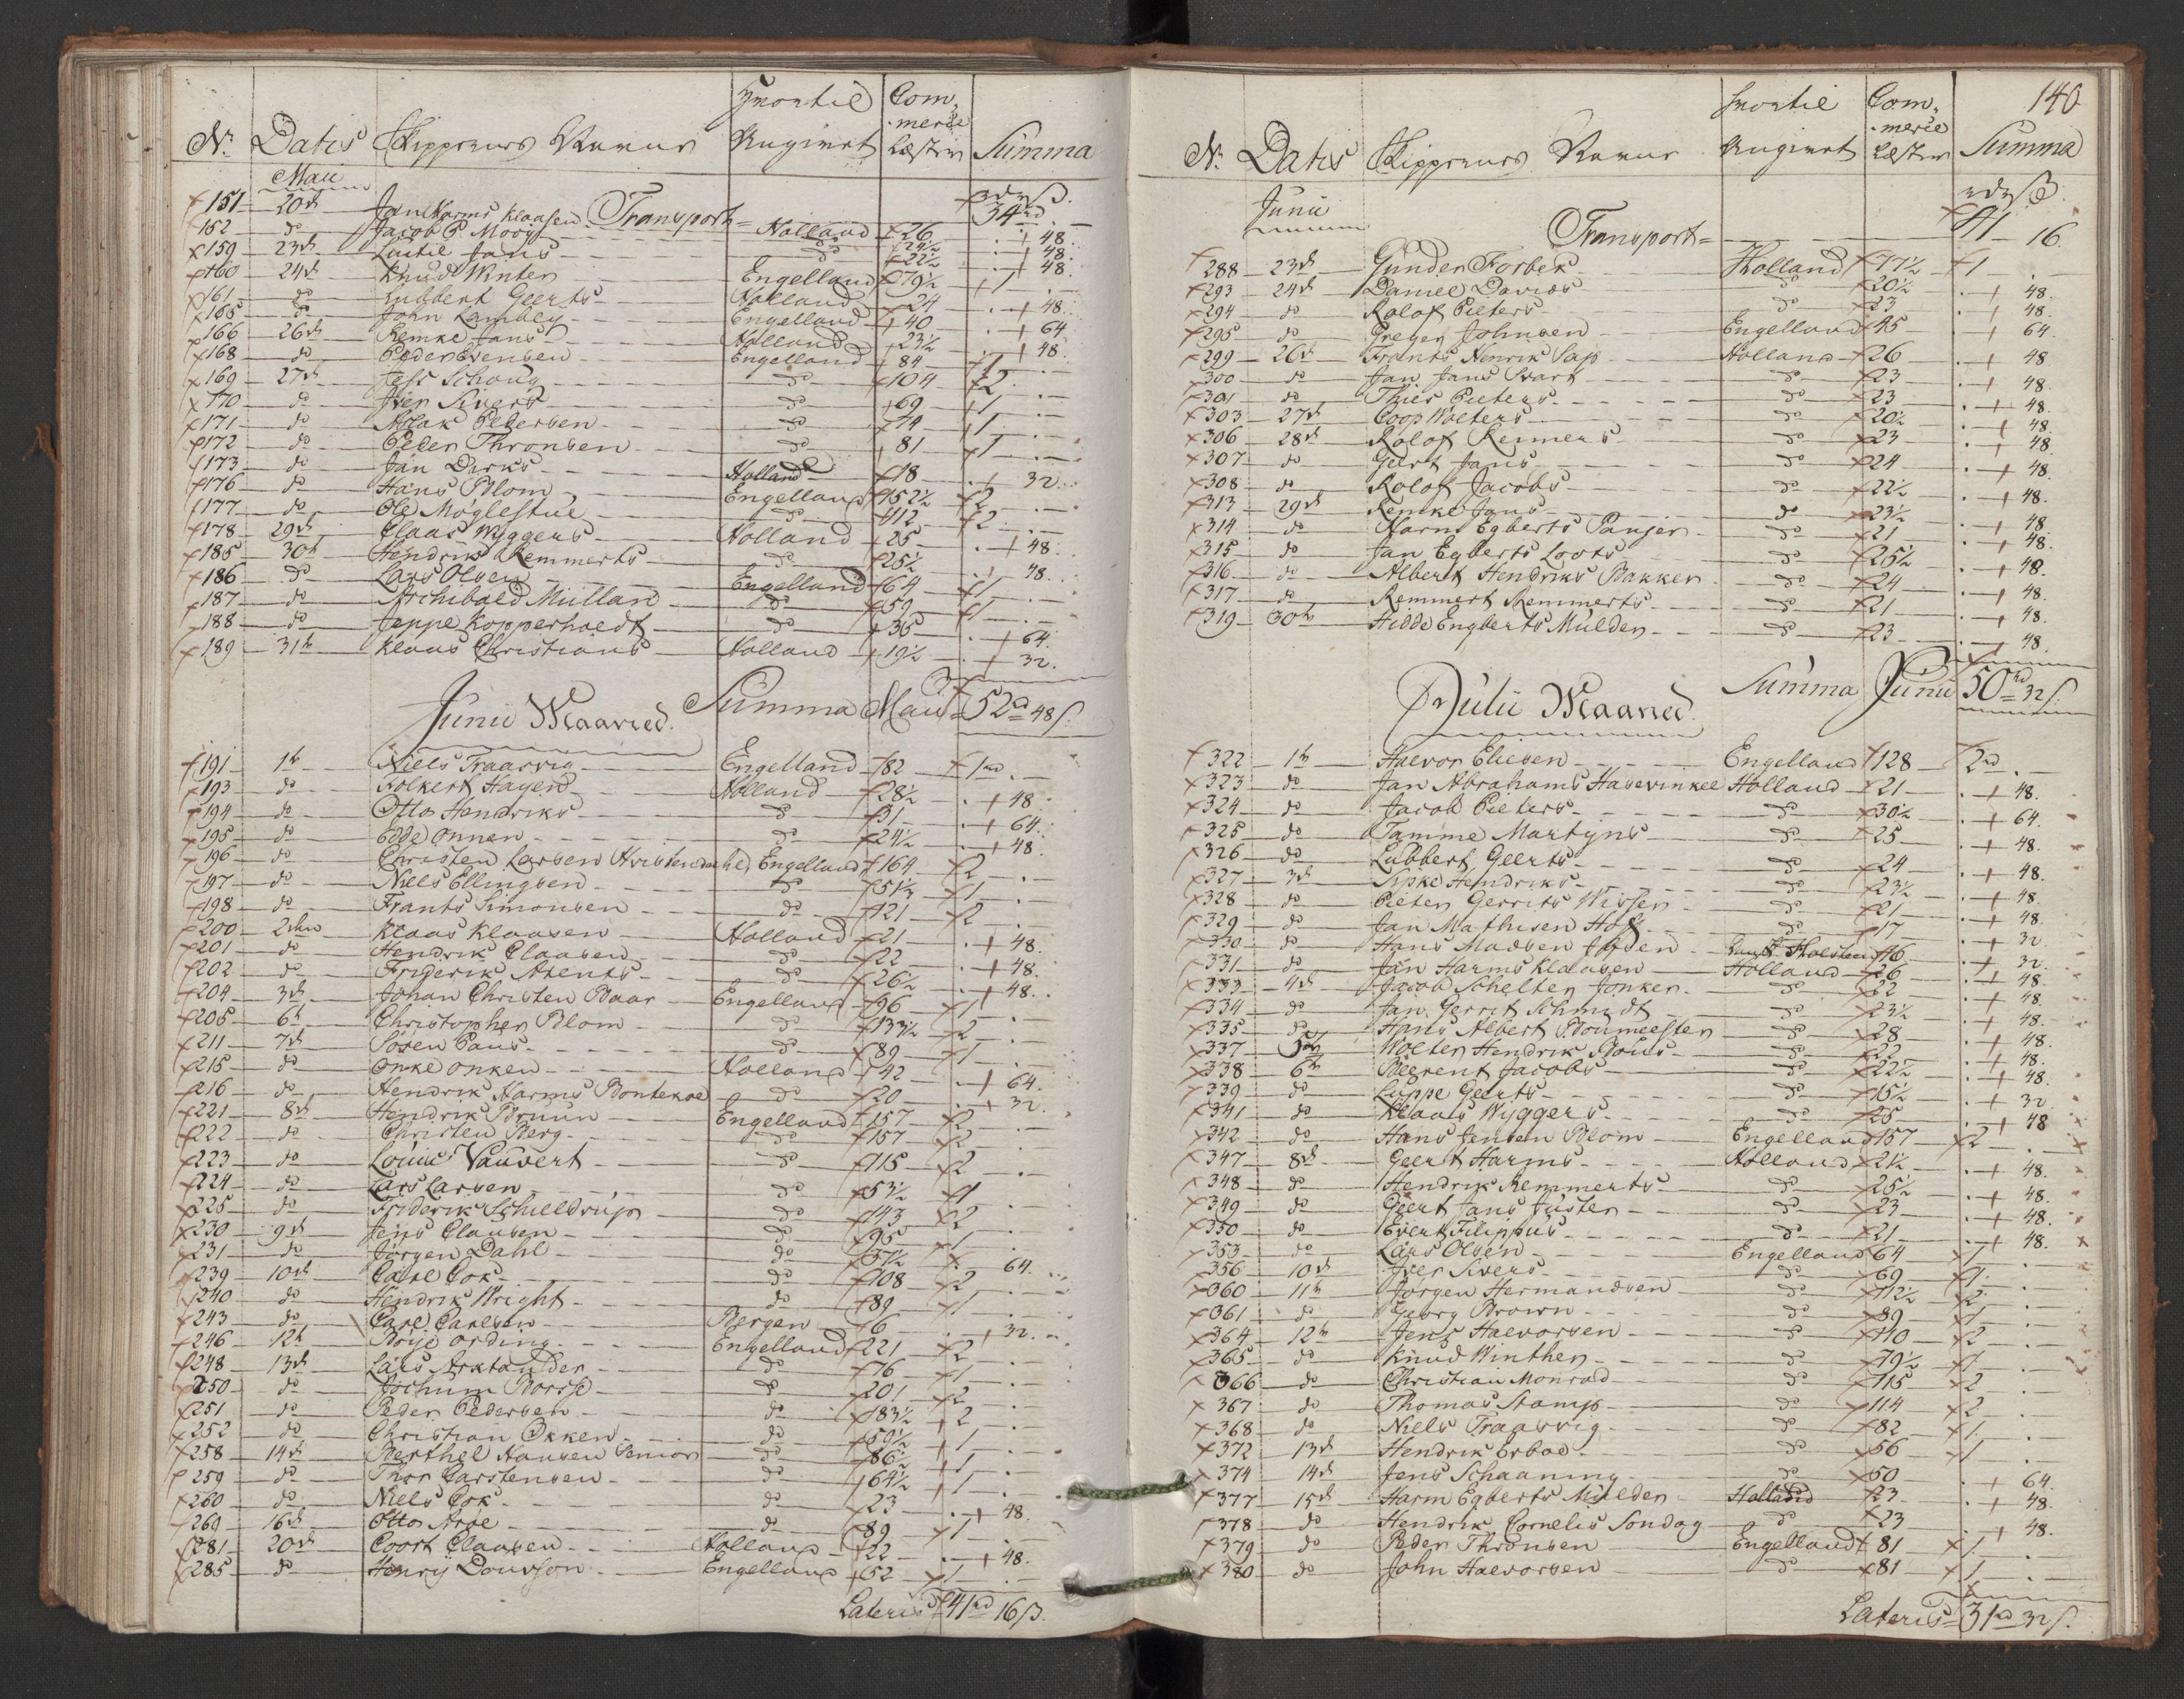 Hvortil Com,
merce
N. Datis Skippernes Navne Angivet Læster Summa
Maii
rdr ß.
Transport 34 rd
151 20de Jan Harms Klaasen Holland 26 48.
152 do Jacob P. Mooy do 24½ 48.
159 23de Luitil Jans do 22½ 48.
160 24de Knud Winter Engelland 79½ 1
161 do Lubbert Geerts Holland 24 48.
165 do John Lambey Engelland 40 64
166 26de Remke Jans Holland 23½ 48.
168 do Peder Evensen Engelland 84 1
169 27de Jess Schoug do 104 2
170 do Iver Sivers do 69 1
171 do Aslak Pedersen do 74 1
172 do Peder Thronsen do 81 1
173 do Jan Dirks Holland 18 32
176 do Hans Blom Engelland 152½ 2
177 do Ole Moglestue do 112 2
178 29de Claas Wyggers Holland 25 48.
185 30te Hendrik Remmerts do 25½ 48.
186 do Lars Olsen Engelland 64 1
187 do Archibald Mullan do 59 1
188 do Jeppe Kopperholdt do 36 64
189 31te Klaas Christians Holland 19½ 32.
Summa Maii 52rd 48ß.
Junii Maaned.
191 1te Niels Traasvig Engelland 82 1rd
193 do Folkert Hayen Holland 28½ 48
194 do Otto Hendriks do 31 64.
195 do Edde Onnen do 24½ 48
196 do Christen Larsen Christendahl, Engelland 164 2
197 do Niels Ellingsen do 51½ 1
198 do Frants Simonsen do 121 2
200 2den Klaas Klaasen Holland 21 48.
201 do Hendrik Claasen do 22 48.
202 do Friderik Arents do 26½ 48.
204 3de Johan Christen Baar Engelland 96 1
205 6te Christopher Blom do 133½ 2
211 7de Søren Paus do 89 1
215 do Onke Onken Holland 42 64.
216 do Hendrik Harms Bontekoe do 20 32.
221 8de Hendrik Bruun Engelland 157 2
222 do Christen Berg do 157 2
223 do Louis Vauvert do 115 2
224 do Lars Larsen do 53½ 1
225 do Friderik Schieldrup do 143 2
230 9de Jens Clausen do 95 1
231 do Jørgen Dahl do 37½ 64.
239 10de Carl Cok do 108 2
240 do Hendrik Wright do 89 1
243 do Carl Carlsen Bergen 6 32.
246 12te Børje Ording Engelland 221 2
248 13de Lars Arxtander do 76 1
250 do Jochum Borse do 201 2
251 do Peder Pedersen do 183½ 2
252 do Christian Økken do 59½ 1
258 14de Berthel Hansen Senior do 86½ 1
259 do Thor Carstensen do 64½ 1
260 do Niels Cok do 23 48.
269 16de Otto Aroe do 89 1
281 20de Coort Claasen Holland 22 48.
285 do Henry Douvson Engelland 62 1
Lateris 41rd 16ß.
140
Hvortil Com,
merce
N. Datis Skippernes Navne Angivet Læster Summa
rdr ß.
Junii
Transport 41 16.
288 23de Gunder Forbek Holland 77½ 1
293 24de Daniel Davids do 20½ 48.
294 do Rolof Pieters do 23 48.
295 do Greger Johnsen Engelland 45 64.
299 26de Frants Henrik Sap Holland 26 48
300 do Jan Jans Svart do 23 48.
301 do Thies Pieters do 23 48.
303 27de Coop Wolters do 20½ 48.
306 28de Rolof Reimers do 23 48.
307 do Geert Jans do 24 48.
308 do Rolof Jacobs do 22½ 48.
313 29de Remke Jans do 23½ 48
314 do Harm Egberts Panjer do 21 48.
315 do Jan Egberts Loots do 25½ 48.
316 do Albert Hendriks Bakker do 24 48.
317 do Remmert Remmerts do 21 48.
319 30te Hidde Engberts Mulder do 23 48.
Summa Junii 50rd 32ß.
Julii Maaned.
322 1te Halvor Eliesen Engelland 128 2rd
323 do Jan Abrahams Hasevinkel Holland 21 48.
324 do Jacob Pieters do 30½ 64.
325 do Tamme Martyns do 25 48.
326 do Lubbert Geerts do 24 48.
327 3de Sipke Hendriks do 23½ 48.
328 do Pieter Gerrits Visser do 21 48.
329 do Jan Mathisen Hoff do 17 32
330 do Hans Madsen Jyden Holsteen 16 32.
331 do Jan Harms Klaasen Holland 26 48.
333 4de Jacob Schelter Jonker do 22 48.
334 do Jan Gerrit Schmidt do 23½ 48.
335 do Hans Albert Boumeester do 28 48.
337 5te Wolter Hendrik Bous do 22 48.
338 6te Beerent Jacobs do 22½ 48.
339 do Luppe Geerts do 15½ 32
341 do Klaas Wyggers do 25 48
342 do Hans Jensen Blom Engelland 157 2
347 8de Geert Harms Holland 21½ 48.
348 do Hendrik Remmerts do 25½ 48.
349 do Geert Jans Juster do 23 48.
350 do Evert Filippus do 21 48.
353 do Lars Olsen Engelland 64 1
356 10de Iver Sivers do 69 1
360 11te Jørgen Hermandsen do 112½ 2
361 do Georg Brown do 89 1
364 12te Jens Halvorsen do 110 2
365 do Knud Winther do 79½ 1
366 do Christian Monrad do 115 2
367 do Thomas Stamp do 114 2
368 do Niels Traasvig do 82 1
372 13de Hendrik Erboe do 56 1
374 14de Jens Schaaning do 50 64.
377 15de Harm Egberts Mulder Holland 23 48.
378 do Hendrik Cornelis Sondag do 23 48.
379 do Peder Thronsen Engelland 81 1
380 do John Halvorsen do 81 1
Lateris 31rd 32ß.